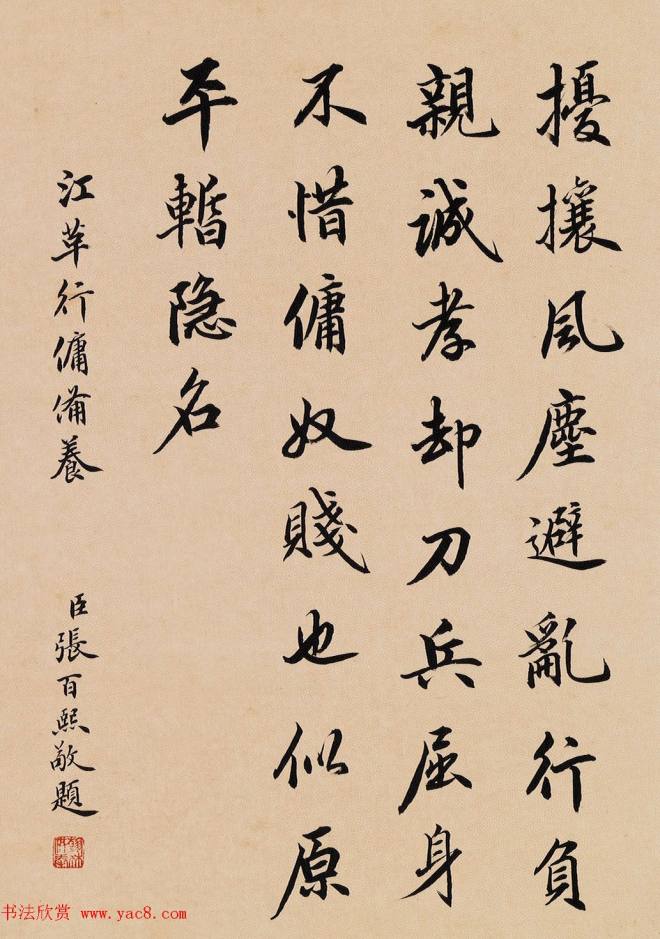 擾攘風塵避亂行負
親誠孝却刀兵屈身
不惜傭奴賤也似原
平暫隐名
江革行傭備養
臣張百熙敬題
书法欣赏 www.yac8.com